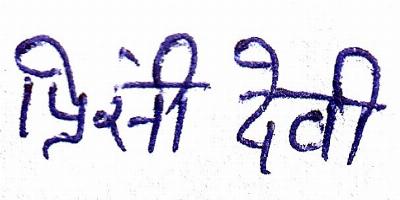 प्रिसंी देवी